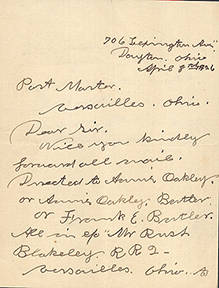 706 Lexington Ave"
Dayton, Ohio
April 8 1926
Post Master.
Versailles. Ohio.
Dear Sir.
Will you kindly
forward all mail.
Directed to Annie Oakley
or Annie Oakley Butler
or Frank E. Butler.
All in Mr Rush
Blakeley R R 2-
Versailles. Ohio.